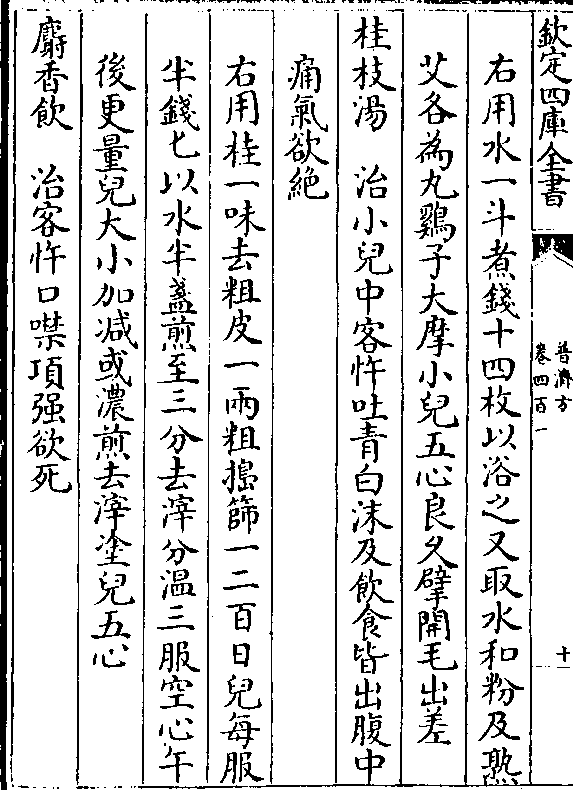 欽定四庫全書
普濟方
卷四百一
十一
右用水一斗煮錢十四枚以浴之又取水和粉及熟
艾各為丸鷄子大摩小兒五心良久擘開毛出差
桂枝湯　治小兒中客忤吐青白沫及飲食皆出腹中
痛氣欲絶
右用桂一味去粗皮一兩粗搗篩一二百日兒每服
半錢七以水半盞煎至三分去滓分温三服空心午
後更量兒大小加减或濃煎去滓塗兒五心
麝香飲　治客忤口噤項强欲死